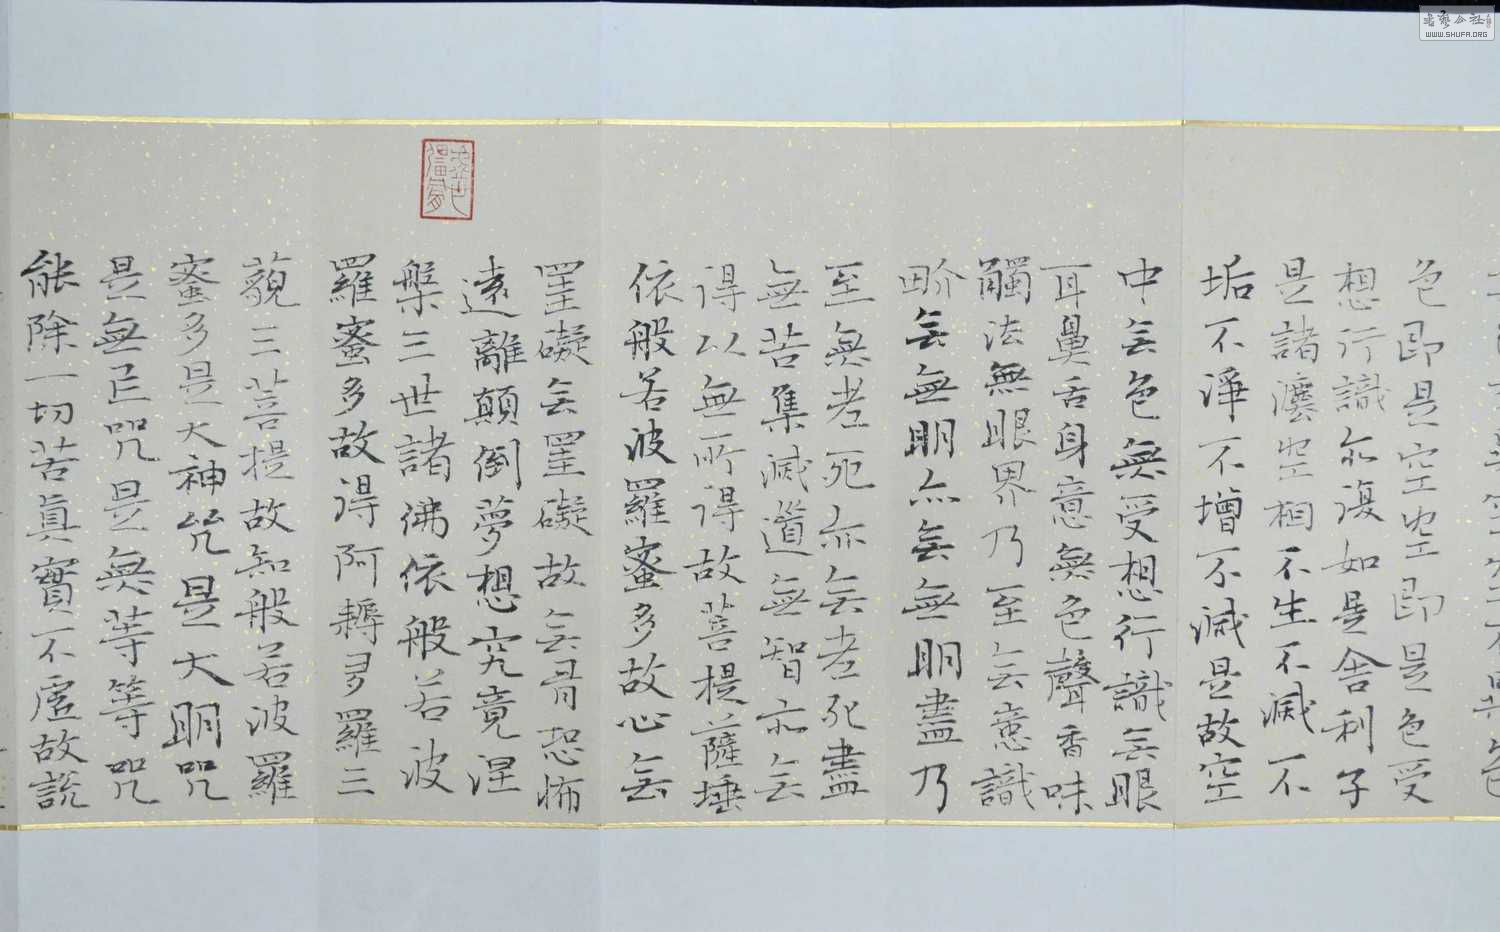 色即是空空即是色受
想行識亦復如是舍利子
是諸法空相不生不滅不
垢不淨不增不減是故空
中无色無受想行識无眼
耳鼻舌身意無色聲香味
觸法無眼界乃至无意識
界无無明亦无無明盡乃
至無老死亦无老死盡
無苦集滅道無智亦无
得以無所得故菩提薩埵
依般若波羅蜜多故心无
罣礙无罣礙故无有恐怖
遠離顛倒夢想究竟涅
槃三世諸佛依般若波
羅蜜多故得阿耨多羅三
藐三菩提故知般若波羅
蜜多是大神咒是大明咒
是無上咒是無等等咒
能除一切苦真實不虛故說
WWW.SHUFA.ORG